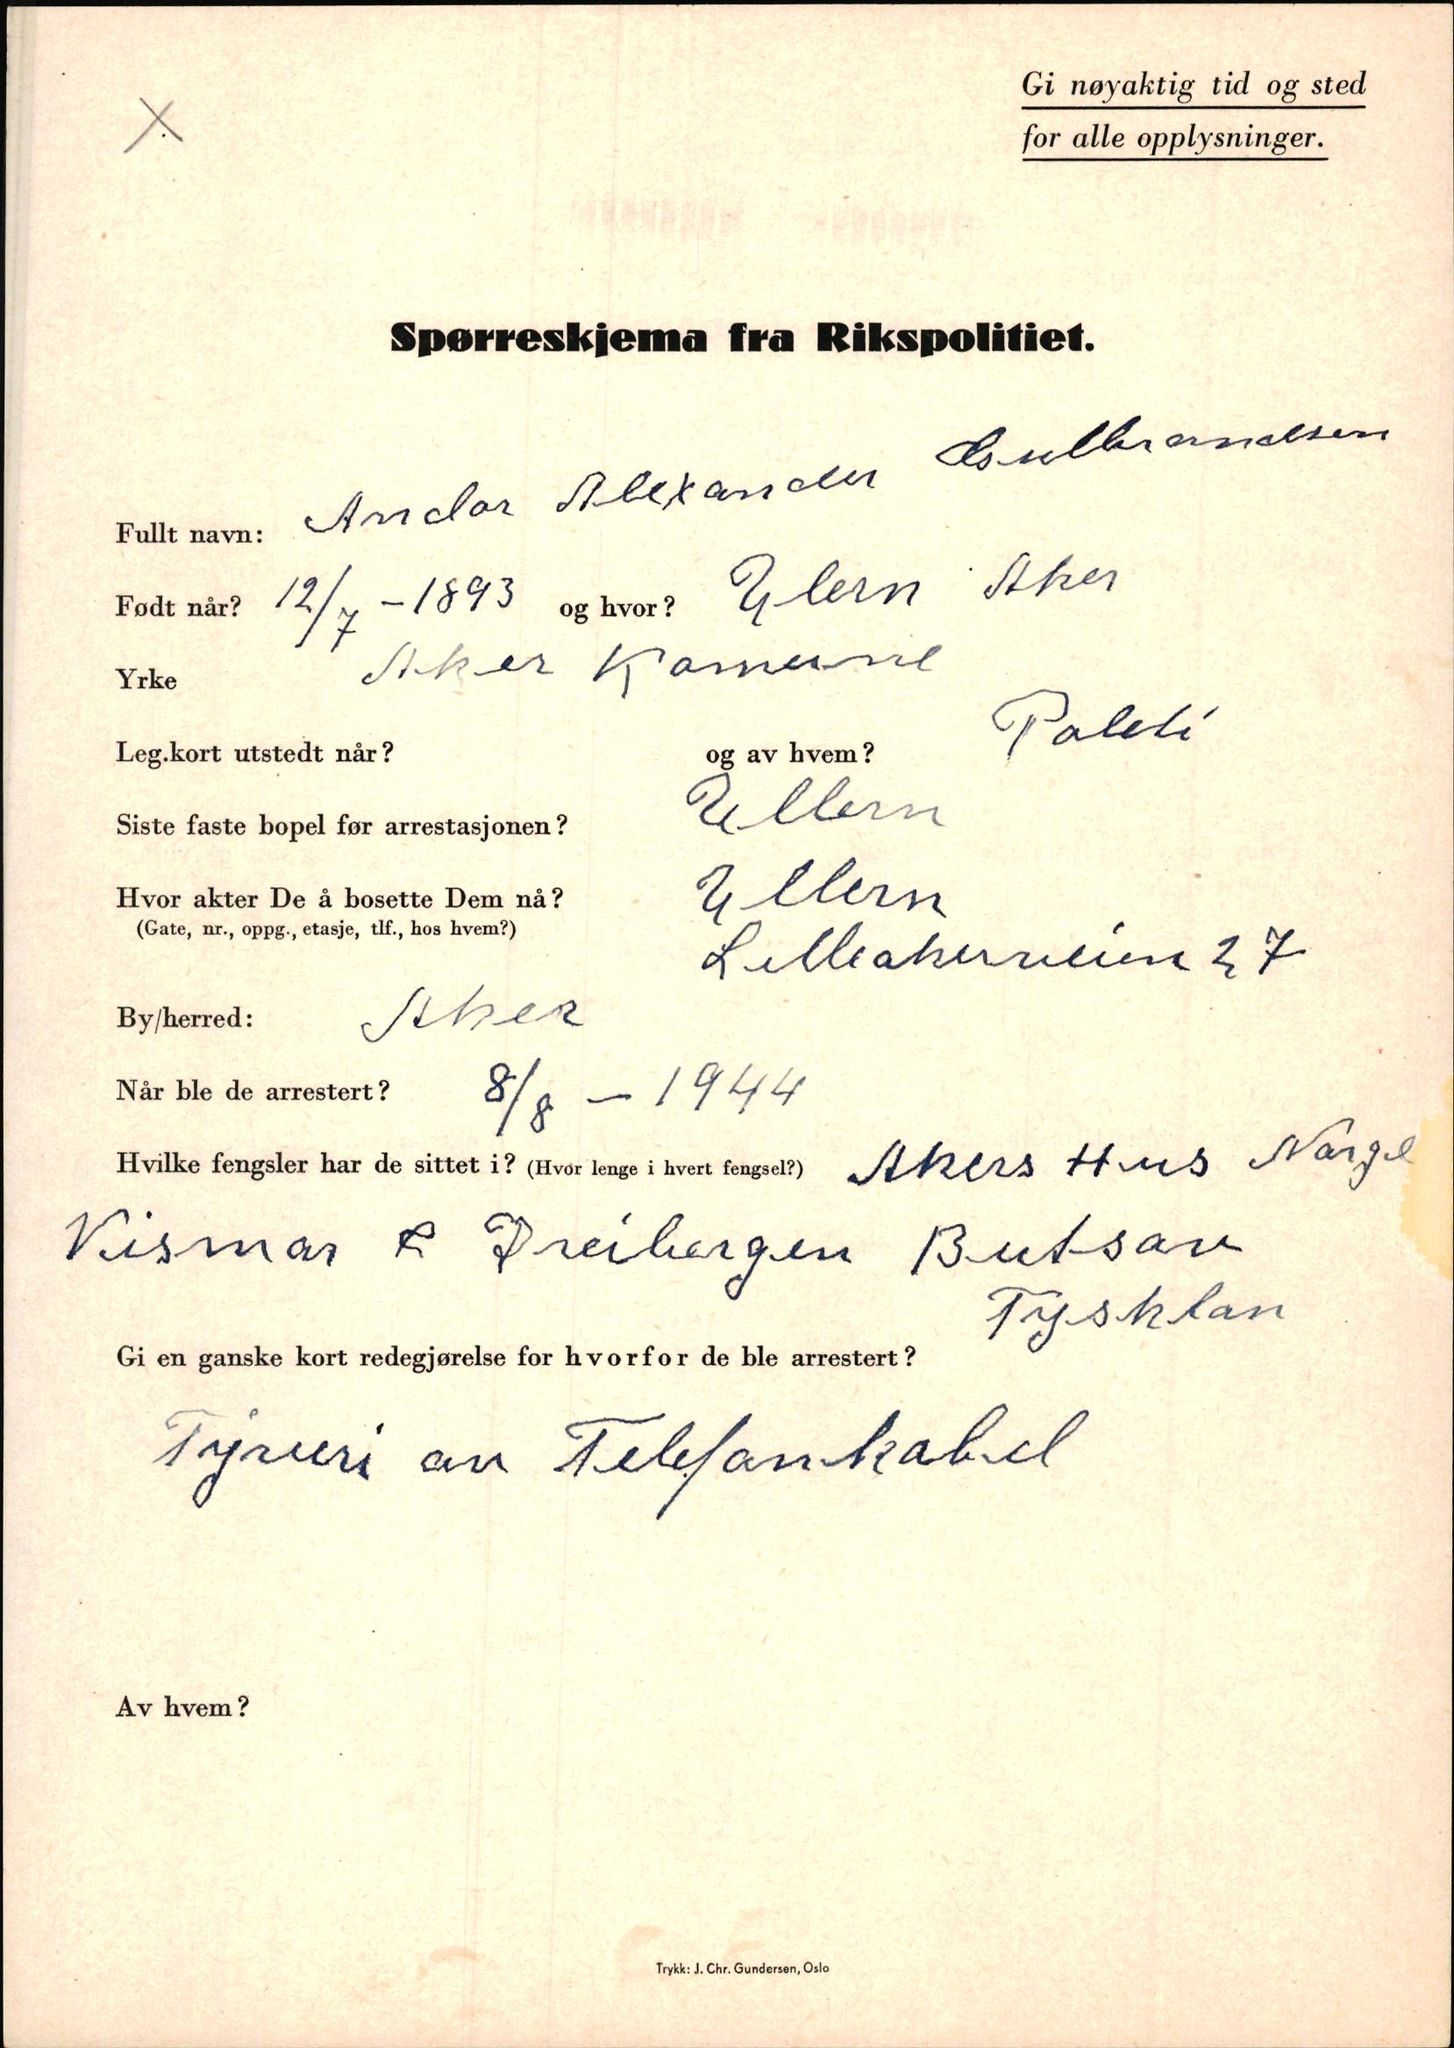 Gi nøyaktig tid og sted
for alle opplysninger.
Spørreskjema fra Rikspolitiet.
Fullt navn: Andor Alexander Gulbrandsen
Født når? 12/7 - 1893 og hvor? Ulern Aker
Yrke Aker Komune
Leg.kort utstedt når? og av hvem? Politi
Siste faste bopel før arrestasjonen? Ullern
Hvor akter De å bosette Dem nå? Ullern
(Gate, nr., oppg., etasje, tlf., hos hvem?) Lilleakerveien 27
By/herred: Aker
Når ble de arrestert? 8/8 - 1944
Hvilke fengsler har de sittet i? (Hvor lenge i hvert fengsel?) Akers Hus Norge
Vismar & Dreibergen Butsav
Tysklan
Gi en ganske kort redegjørelse for hvorfor de ble arrestert?
Tyveri av Telefonkabel
Av hvem?
Trykk: J. Chr. Gundersen, Oslo